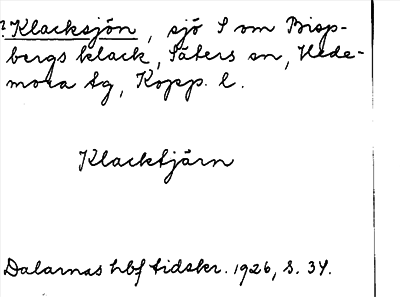 ? Klacksjön, sjö S om Bisp-
bergs klack, Säters sn, Hede-
mora tg, Kopp. l.
Klacktjärn
Dalarnas hbf tidskr. 1926, s. 34.